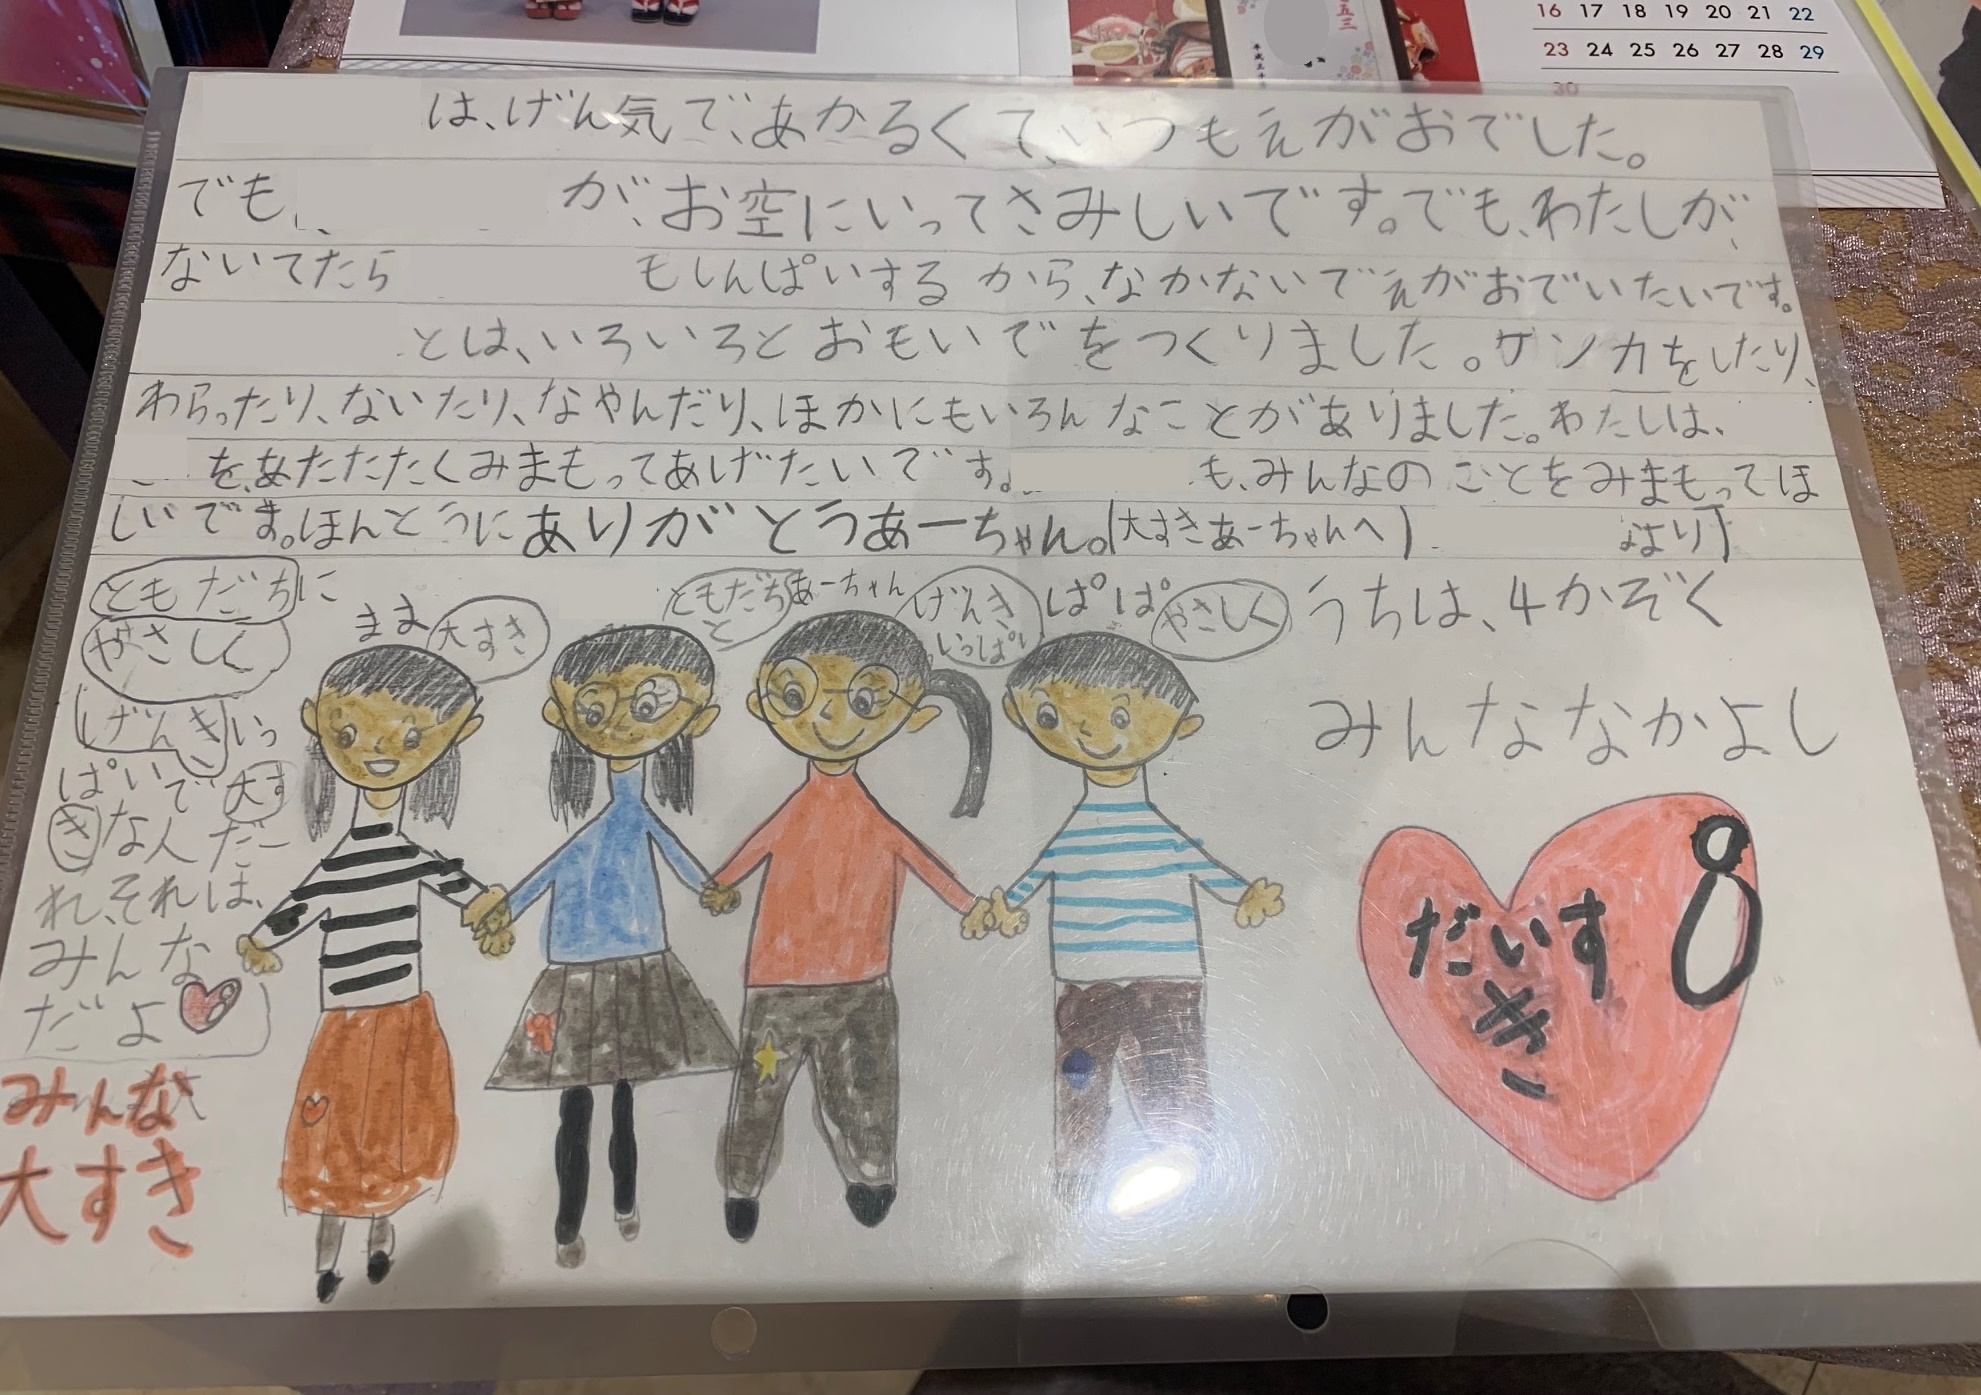 16 17 18 19 20 21 22
23 24 25 26 27 28 29
30
は、げん気で、あかるくて、いつもえがおでした。
でも、 が、お空にいってさみしいです。でも、わたしが、
ないてたら もしんぱいするから、なかないでえがおでいたいです。
とは、いろいろとおもいでをつくりました。ケンカをしたり、
わらったり、ないたり、なやんだり、ほかにもいろんなことがありました。わたしは、
を、あたたたくみまもってあげたいです。 も、みんなのことをみまもってほ
しいです。ほんとうにありがとうあーちゃん。(大すきあーちゃんへ) より
ともだちに
やさしく
げんきいっ
ぱいで大す
きな人だー
れ、それは、
みんな
だよ
みんな
大すき
まま 大すき
ともだち
と
あーちゃん
げんき
いっぱい
ぱぱ やさしく
うちは、4かぞく
みんななかよし
だいす
き